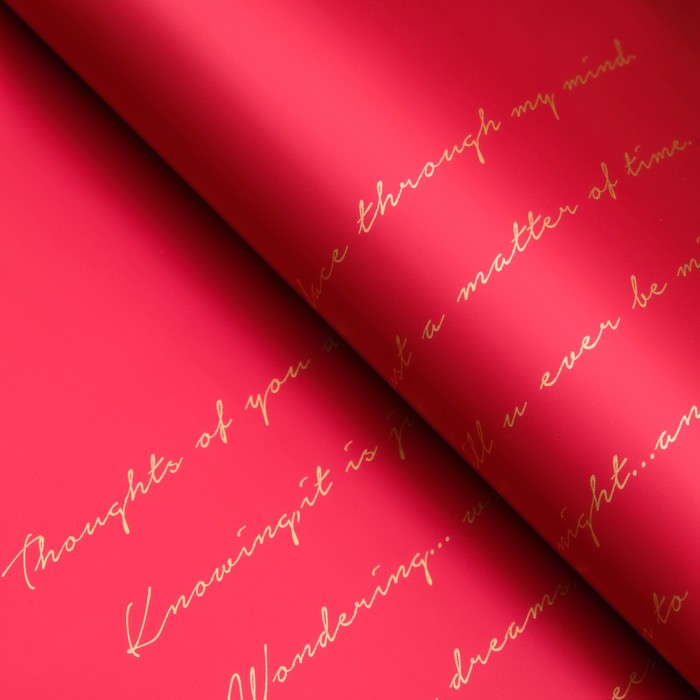 Thoughts of you through my mind.
Knowing,it is a matter of time.
Wondering... u ever be
dreams night...
to